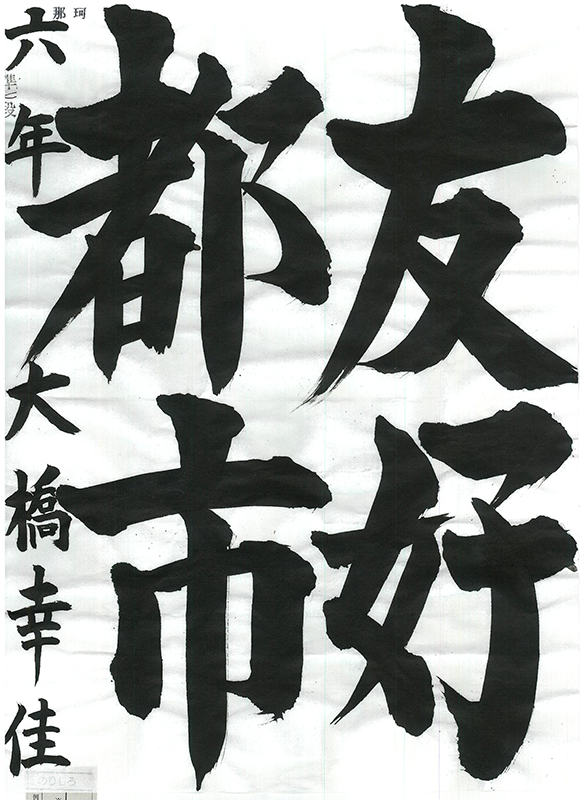 友好
都市
六年 大橋幸佳
那珂
準一段
のりしろ